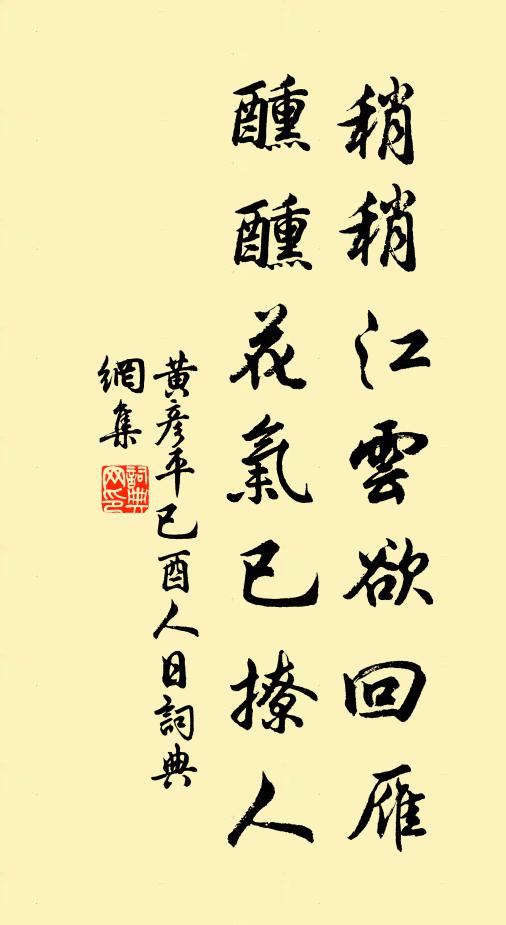 稍稍江雲欲回雁
醺醺花氣已撩人
黃彦平已酉人日詞典
網集
詞典
网印